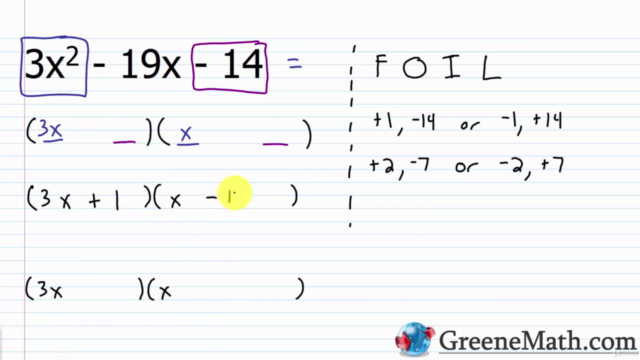 3x² - 19x - 14 =
(3x _)(x _)
(3x + 1)(x - 1)
(3x )(x )
F O I L
+1, -14 or -1, +14
+2, -7 or -2, +7
GreeneMath.com